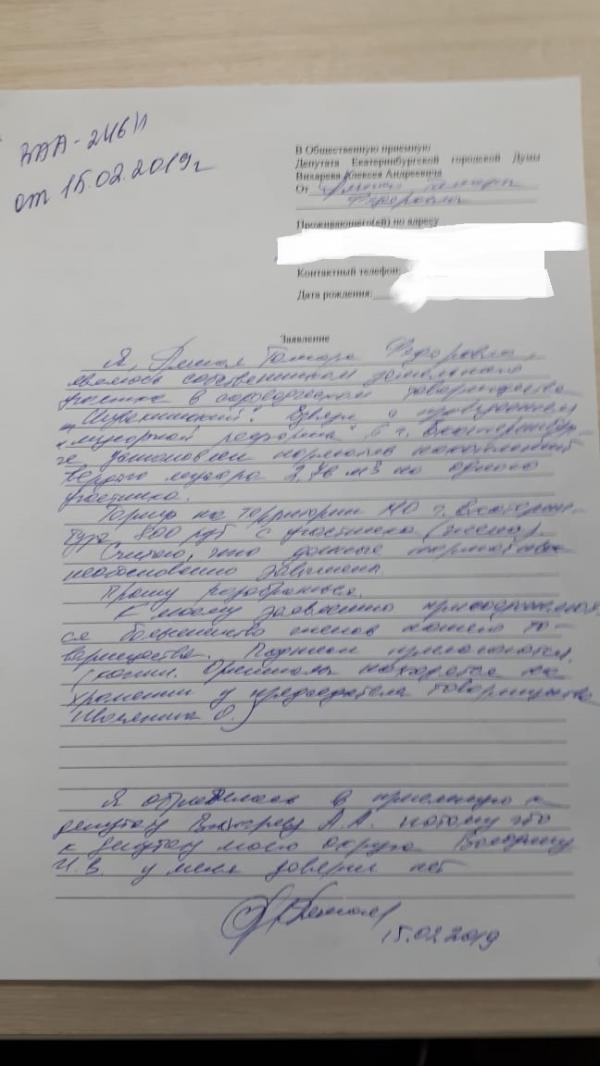 ВАА-246/1
от 15.02.2019г
В Общественную приемную
Депутата Екатеринбургской городской Думы
Вихарева Алексея Андреевича
От Тамары
Федоровны
Проживающего(ей) по адресу
Контактный телефон:
Дата рождения:
Заявление
Я, Тамара Федоровна,
являюсь собственником земельного
участка в садоводческом товариществе
В связи с проведением
"мусорной реформы" в г. Екатеринбур-
ге установлен норматив накоплений
твердого мусора м3 на одного
участника.
Тариф на территории МО г. Екатерин-
бург 800 руб с участника (члена).
Считаю, что данные
необоснованно завышены.
Прошу разобраться.
К моему заявлению
ся большинство членов нашего то-
варищества. Подписи прилагаются.
(копии. Оригиналы находятся на
хранении у председателя товарищества
О.)
Я обратилась в приемную к
депутату Вихареву А.А. потому что
к депутату моего округа Володину
И.В. у меня доверия нет
15.02.2019